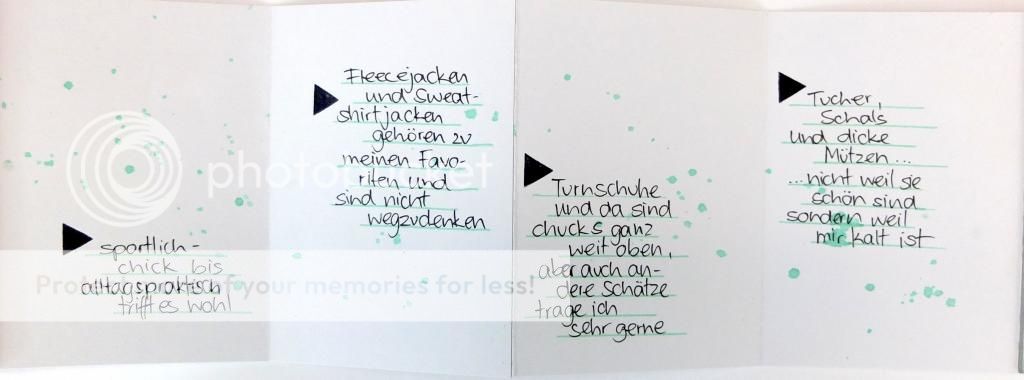 sportlich-
chick bis
alltagspraktisch
trifft es wohl
Fleecejacken
und Sweat-
shirtjacken
gehören zu
meinen Favo-
riten und
sind nicht
wegzudenken
Turnschuhe
und da sind
chucks ganz
weit oben,
aber auch an-
dere Schätze
trage ich
sehr gerne
Tücher,
Schals
und dicke
Mützen...
...nicht weil sie
schön sind
sondern weil
mir kalt ist
photobucket
of your memories for less!